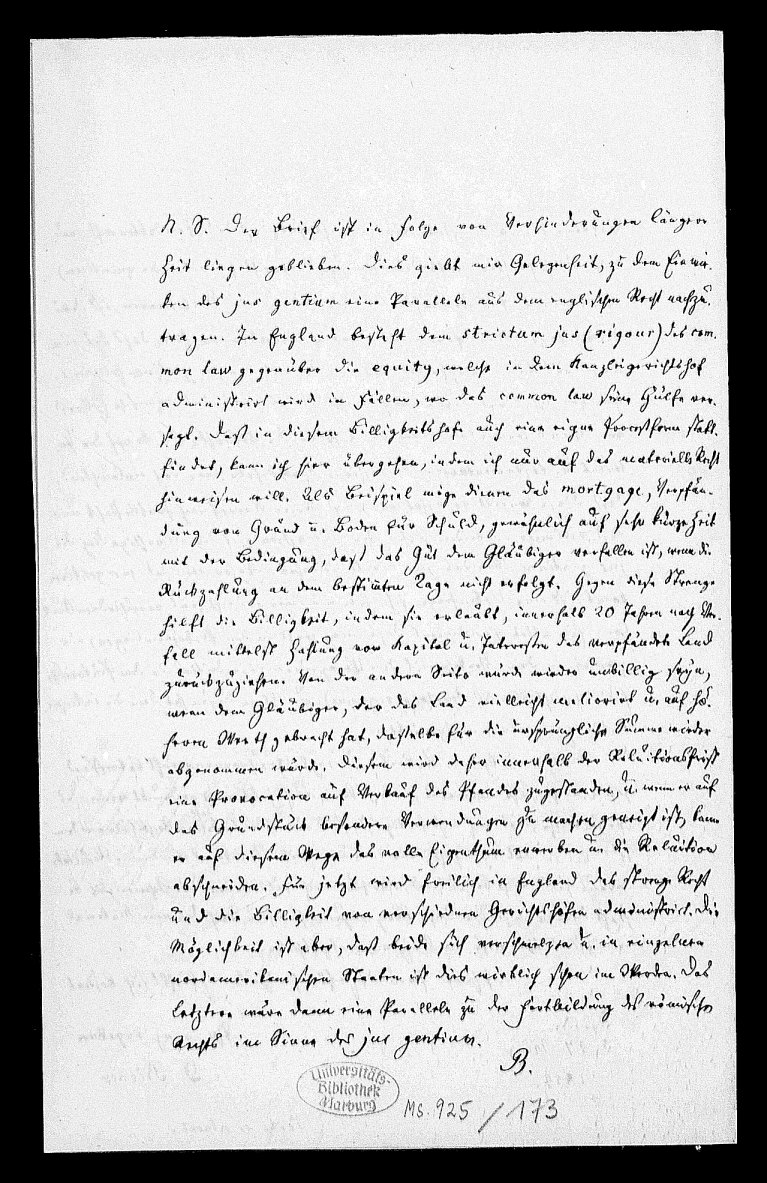 N. S. Der Brief ist in Folge von Verhinderungen längere
Zeit liegen geblieben. Dies giebt mir Gelegenheit, zu dem Einwir-
ken des jus gentium eine Parallele aus dem englischen Recht nachzu-
tragen. In England besteht dem strictum jus (rigour) des com-
mon law gegenüber die equity, welche in dem Kanzleigerichtshof
administrirt wird in Fällen, wo das common law seine Hülfe ver-
sagt. Daß in diesem Billigkeitshofe auch eine eigne Proceßform statt-
findet, kann ich hier übergehen, indem ich nur auf das materielle Recht
hinweisen will. Als Beispiel möge dienen das mortgage, Verpfän-
dung von Grund u. Boden für Schuld, gewöhnlich auf sehr kurze Zeit
mit der Bedingung, daß das Gut dem Gläubiger verfallen ist, wenn die
Rückzahlung an dem bestimten Tage nicht erfolgt. Gegen diese Strenge
hilft die Billigkeit, indem sie erlaubt, innerhalb 20 Jahren nach Ver-
fall mittelst Zahlung von Kapital u. Interessen das verpfändete Land
zurückzuziehen. Von der andern Seite würde wieder unbillig seyn,
wenn dem Gläubiger, der das Land vielleicht meliorirt u. auf hö-
heren Werth gebracht hat, dasselbe für die ursprüngliche Summe wieder
abgenommen würde. Diesem wird daher innerhalb der Reluitionsfrist
eine Provocation auf Verkauf des Pfandes zugestanden, u. wenn er auf
das Grundstück besondere Verwendungen zu machen geneigt ist, kann
er auf diesem Wege das volle Eigenthum erwerben u. die Reluition
abschneiden. Für jetzt wird freilich in England das strenge Recht
und die Billigkeit von verschiednen Gerichtshöfen administrirt. Die
Möglichkeit ist aber, daß beide sich verschmelzen u. in einzelnen
nordamerikanischen Staaten ist dies wirklich schon im Werden. Das
letztere wäre dann eine Parallele zu der Fortbildung des römischen
Rechts im Sinne des jus gentium.
B.
Universitäts-
Bibliothek
Marburg
Ms. 925 / 173